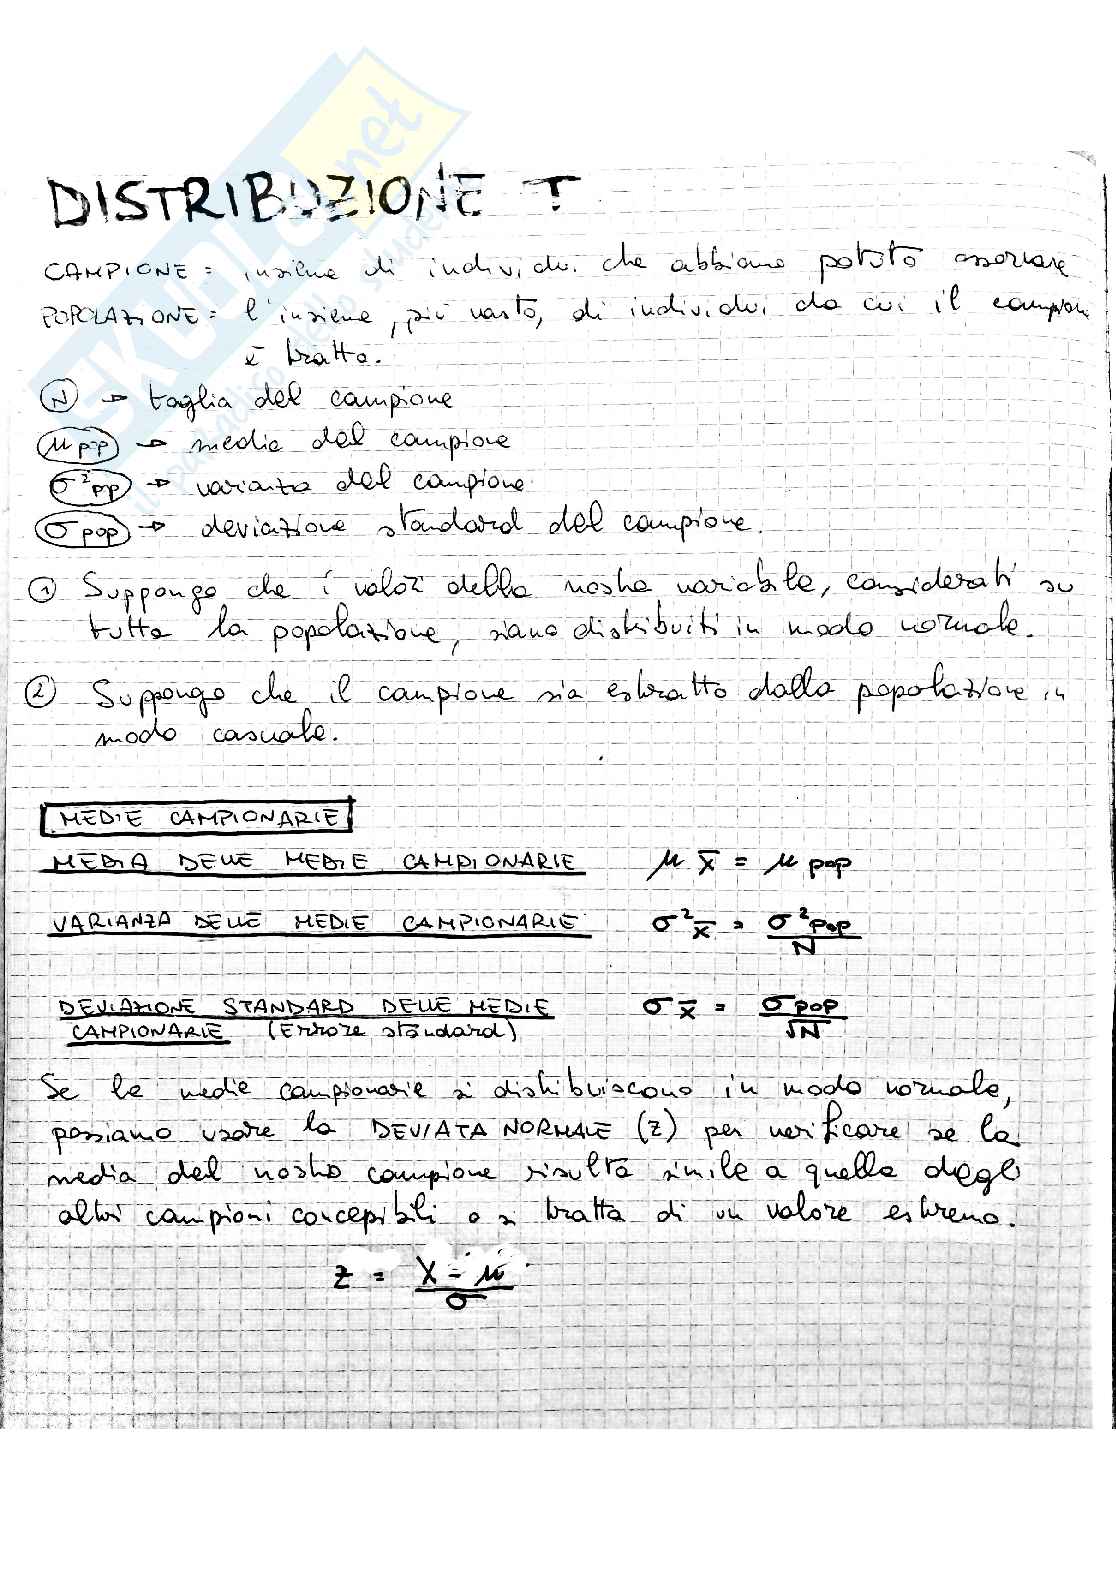 SKUOLA.net
DISTRIBUZIONE T
CAMPIONE = insieme di individui che abbiamo potuto osservare
POPOLAZIONE = l'insieme, più vasto, di individui da cui il campione
è tratto.
N → taglia del campione
μ pop → media del campione
σ² pop → varianza del campione
σ pop → deviazione standard del campione.
① Suppongo che i valori della nostra variabile, considerati su
tutta la popolazione, siano distribuiti in modo normale.
② Suppongo che il campione sia estratto dalla popolazione in
modo casuale.
MEDIE CAMPIONARIE
MEDIA DELLE MEDIE CAMPIONARIE μ x̄ = μ pop
VARIANZA DELLE MEDIE CAMPIONARIE σ² x̄ = σ² pop / N
DEVIAZIONE STANDARD DELLE MEDIE σ x̄ = σ pop / √N
CAMPIONARIE (Errore standard)
Se le medie campionarie si distribuiscono in modo normale,
possiamo usare la DEVIATA NORMALE (z) per verificare se la
media del nostro campione risulta simile a quella degli
altri campioni concepibili o si tratta di un valore estremo.
z = X - μ / σ